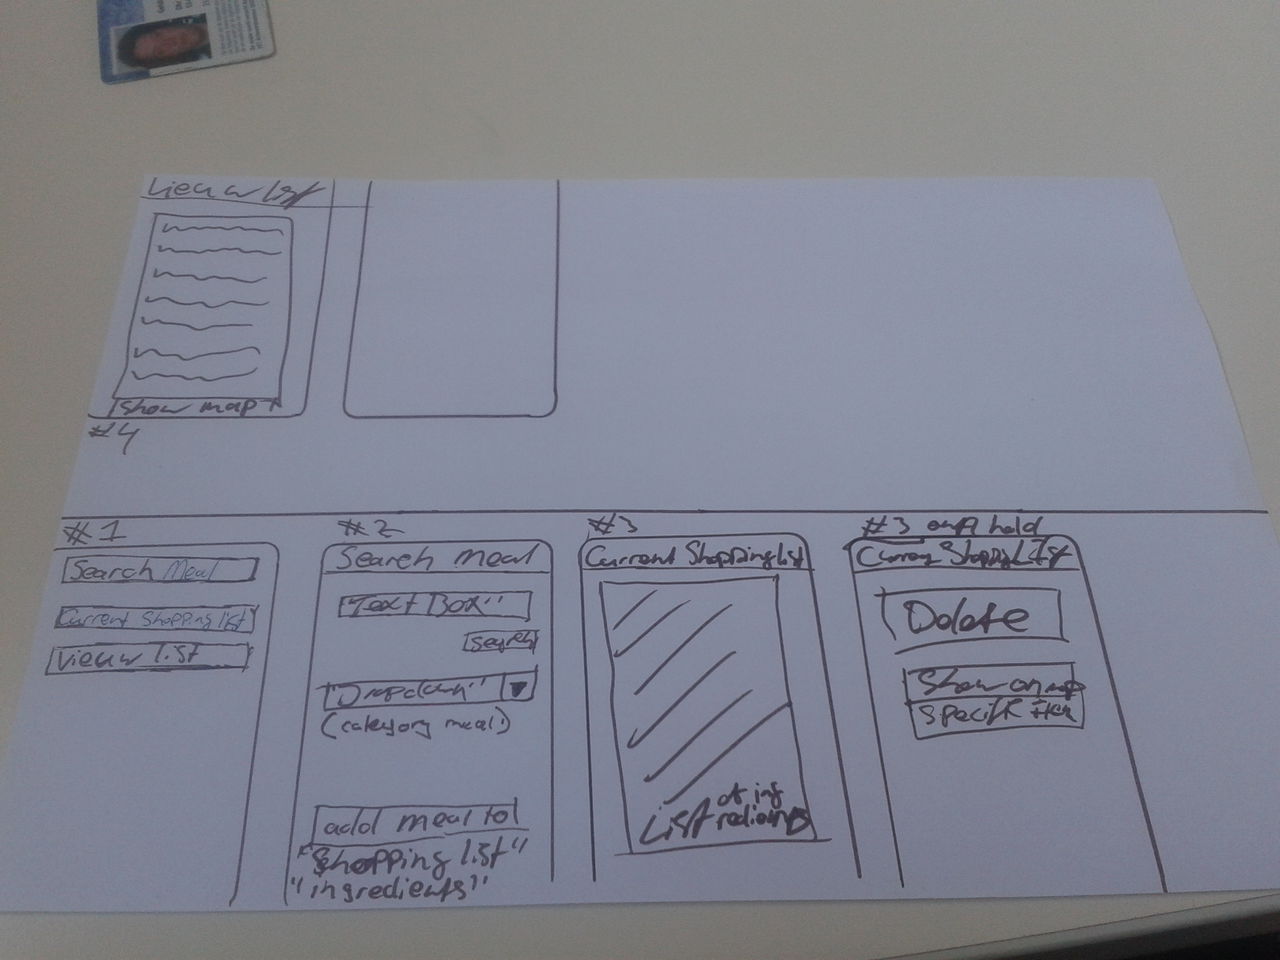 View list
Show map
#4
#1
Search Meal
Current Shopping list
View list
#2
Search meal
"Text Box"
Search
"Dropdown"
(category meal)
add meal to
"Shopping list"
"ingredients"
#3
Current Shopping list
List of ing
redients
#3 hold
Shopping List
Delete
Show on map